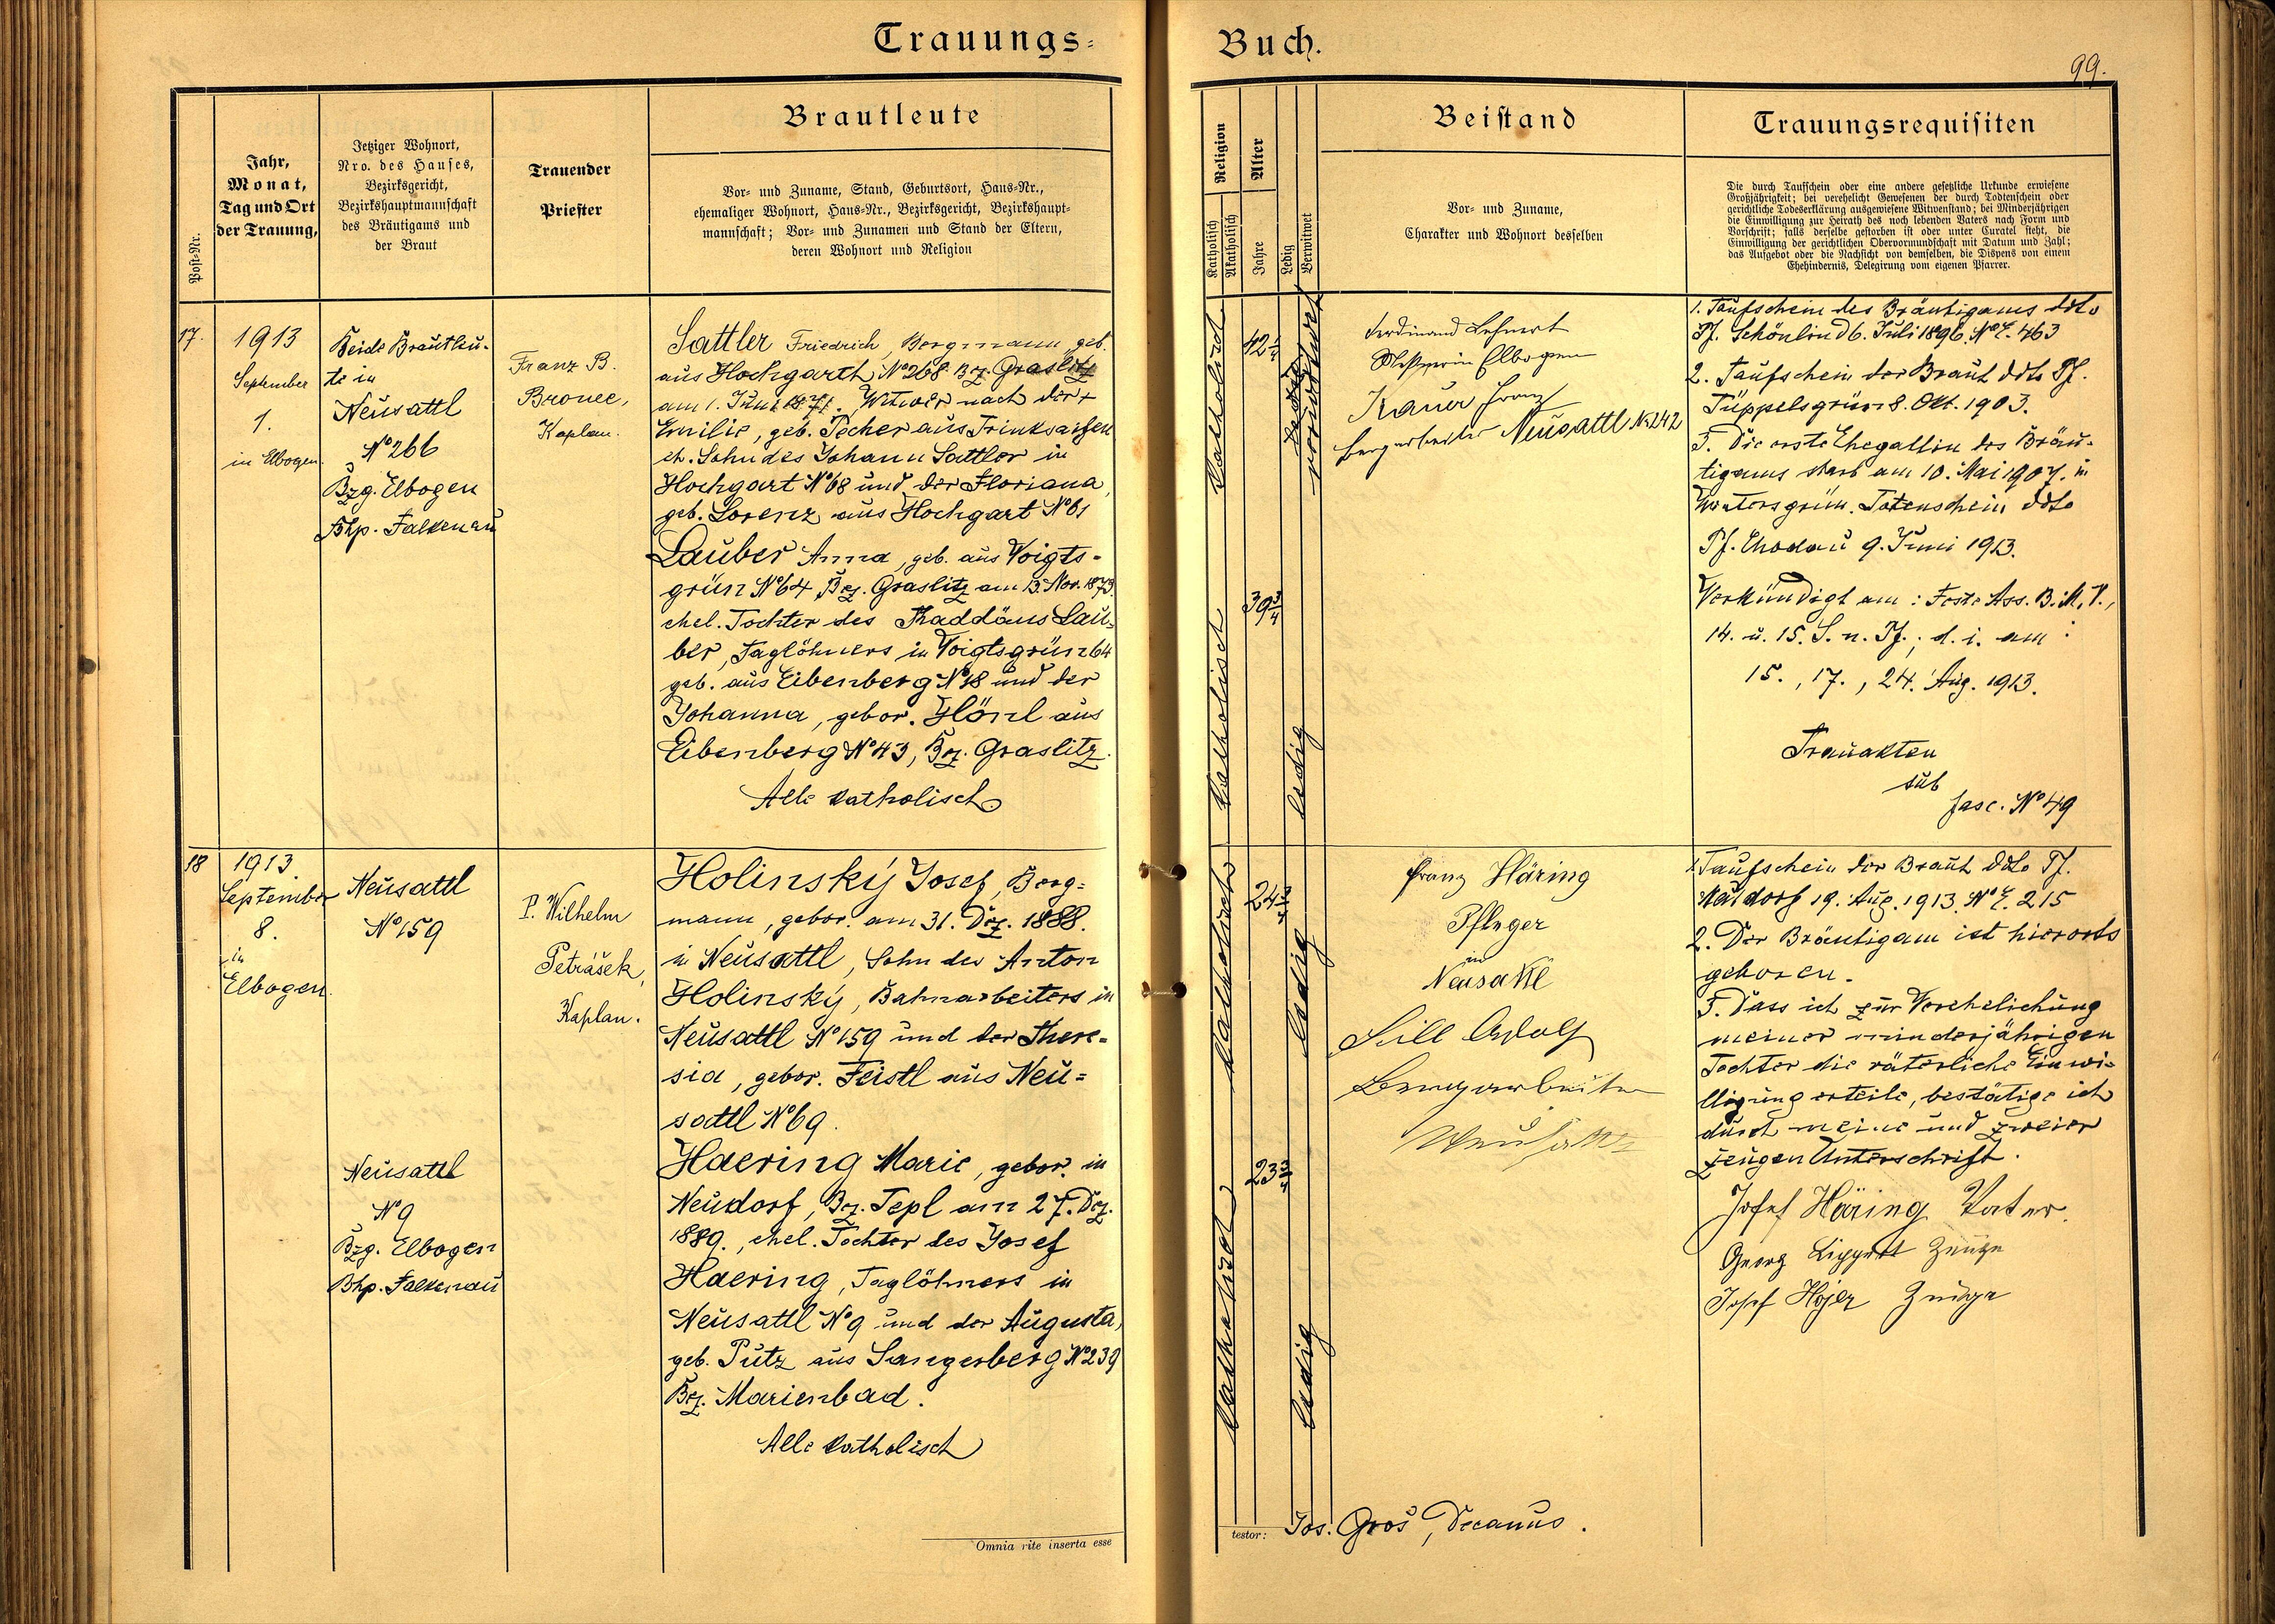 Trauungs-
Buch.
99.
Post-Nr.
Jahr,
Monat,
Tag und Ort
der Trauung,
Jetziger Wohnort,
Nro. des Hauses,
Bezirksgericht,
Bezirkshauptmannschaft
des Bräutigams und
der Braut
Trauender
Priester
Brautleute
Vor- und Zuname, Stand, Geburtsort, Haus-Nr.,
ehemaliger Wohnort, Haus-Nr., Bezirksgericht, Bezirkshaupt-
mannschaft; Vor- und Zunamen und Stand der Eltern,
deren Wohnort und Religion
Religion
Katholisch
Akatholisch
Alter
Jahre
Ledig
Verwitwet
Beistand
Vor- und Zuname,
Charakter und Wohnort desselben
Trauungsrequisiten
Die durch Taufschein oder eine andere gesetzliche Urkunde erwiesene
Großjährigkeit; bei verehelicht Gewesenen der durch Todtenschein oder
gerichtliche Todeserklärung ausgewiesene Witwenstand; bei Minderjährigen
die Einwilligung zur Heirath des noch lebenden Vaters nach Form und
Vorschrift; falls derselbe gestorben ist oder unter Curatel steht, die
Einwilligung der gerichtlichen Obervormundschaft mit Datum und Zahl;
das Aufgebot oder die Nachsicht von demselben, die Dispens von einem
Ehehindernis, Delegirung vom eigenen Pfarrer.
17.
1913
September
1.
in Elbogen.
Beide Brautleu-
te in
Neusattl
No 266
Bzg. Elbogen
Bhp. Falkenau
Franz B.
Bronec,
Kaplan.
Sattler Friedrich, Bergmann, geb.
aus Hochgarth No 268 Bz. Graslitz
am 1. Juni 1871. Witwer nach der +
Emilie, geb. Pecher aus Trinksaifen
eh. Sohn des Johann Sattler in
Hochgart No 68 und der Floriana,
geb. Lorenz aus Hochgart No 61
Lauber Anna, geb. aus Voigts-
grün No 64, Bez. Graslitz am 13. Nov. 1873.
ehel. Tochter des Thaddäus Lau-
ber, Taglöhners in Voigtsgrün 64
geb. aus Eibenberg No 18 und der
Johanna, gebor. Hönl aus
Eibenberg No 43, Bez. Graslitz.
Alle katholisch
katholisch
42 1/4
verwitwet
katholisch
39 3/4
ledig
Ferdinand Lehnert
Meßner in Elbogen
Kauer Franz
Bergarbeiter Neusattl No 242
1. Taufschein des Bräutigams ddto
Pf. Schönlind 6. Juli 1896. No E. 463
2. Taufschein der Braut ddto Pf.
Tüppelsgrün 8. Okt. 1903.
3. Die erste Ehegattin des Bräu-
tigams starb am 10. Mai 1907. in
Wintersgrün. Totenschein ddto
Pf. Chodau 9. Juni 1913.
Verkündigt am: Feste Ass. B. M. V.,
14. u. 15. S. n. Pf.; d. i. am:
15., 17., 24. Aug. 1913.
Trauakten
sub
fasc. No 49
18
1913.
September
8.
in
Elbogen.
Neusattl
No 159
Neusattl
No 9
Bzg. Elbogen
Bhp. Falkenau
P. Wilhelm
Petrášek,
Kaplan.
Holinský Josef, Berg-
mann, gebor. am 31. Dez. 1888.
in Neusattl, Sohn des Anton
Holinský, Bahnarbeiters in
Neusattl No 159 und der There-
sia, gebor. Feistl aus Neu-
sattl No 69.
Haering Marie, gebor. in
Neudorf, Bez. Tepl am 27. Dez.
1889., ehel. Tochter des Josef
Haering, Taglöhners in
Neusattl No 9 und der Augusta,
geb. Putz aus Sangerberg No 239
Bez. Marienbad.
Alle katholisch
katholisch
24 3/4
ledig
katholisch
23 3/4
ledig
Franz Häring
Pfleger
in
Neusattl
Sill Adolf
Bergarbeiter
Neusattl
1. Taufschein der Braut ddto Pf.
Neudorf 19. Aug. 1913. No E. 215
2. Der Bräutigam ist hierorts
geboren.
3. Dass ich zur Verehelichung
meiner minderjährigen
Tochter die väterliche Einwi-
lligung erteile, bestätige ich
durch meine und zweier
Zeugen Unterschrift.
Josef Häring Vater.
Georg Lippert Zeuge
Josef Hojer Zeuge
Omnia rite inserta esse
testor: Jos. Groš, Decanus.